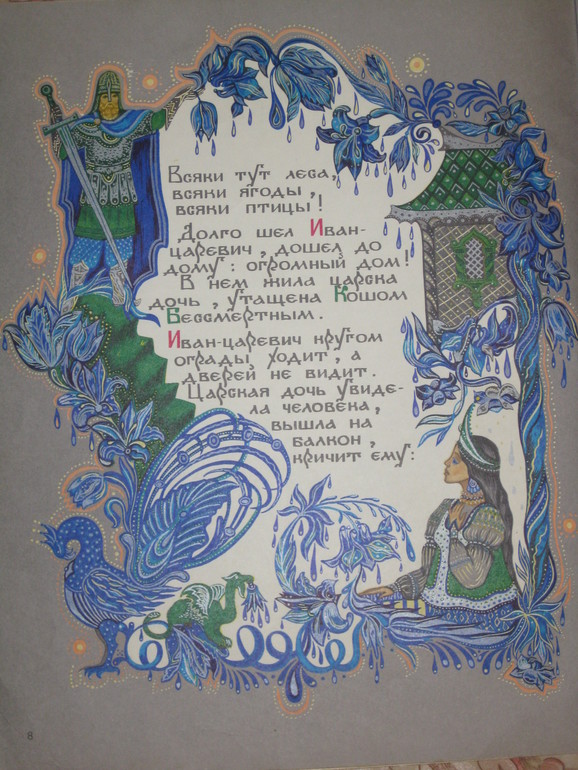 Всяки тут леса,
всяки ягоды,
всяки птицы!
Долго шел Иван-
царевич, дошел до
дому: огромный дом!
В нем жила царска
дочь, утащена Кошом
Бессмертным.
Иван-царевич кругом
ограды ходит, а
дверей не видит.
Царская дочь увиде-
ла человека,
вышла на
балкон,
кричит ему:
8